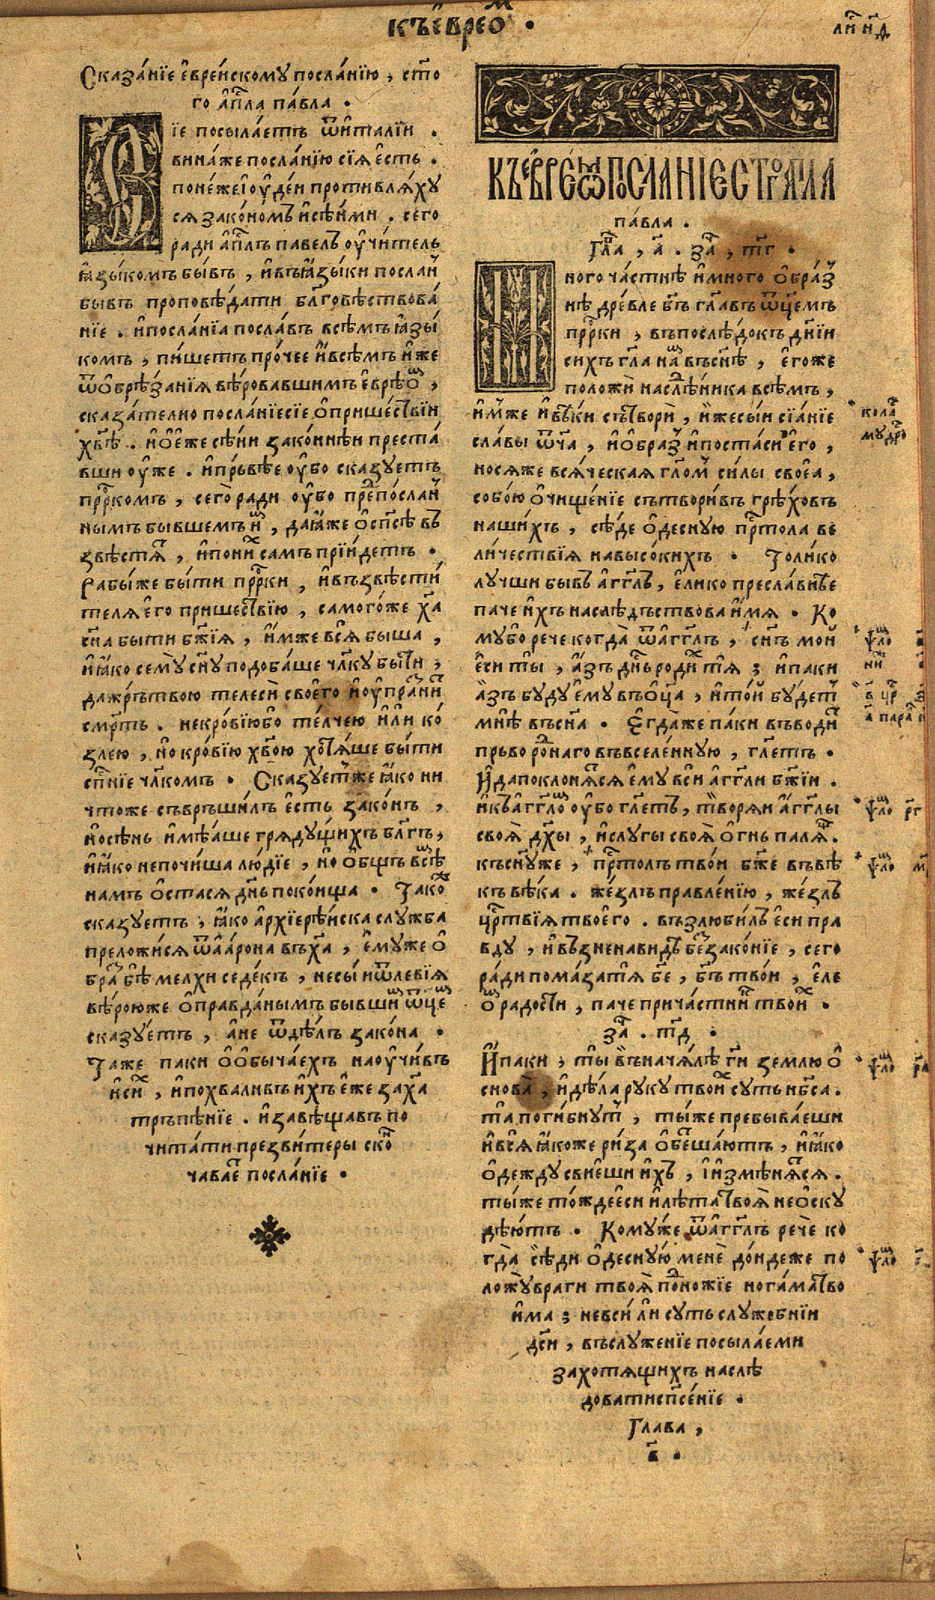 къ евреѡⷨ ·
лиⷭ н҃д
Сказа́нїе е҆вре́искому посла́нїю , ст҃о
го а҆пⷭ҇ла па́вла ·
Сїе посыла́етъ ѿи҆талїи .
вина́же посла́нїю сїѧ е҆сть .
поне́жеі҆ꙋ҆де́и противлѧ́хꙋ
сѧ зако́номъ и҆сѣ́ньми . сего
ради а҆пⷭ҇лъ павелъ оу҆чи́тель
ꙗ҆зы́комъ бы́въ , и҆въꙗ҆зы́ки посла́н
бывъ проповѣ́дати бл҃говѣствова́
нїе . и҆посла́нїа посла́въ всѣ́мъ ꙗ҆зы́
комъ , пи́шетъ про́чее и҆всѣ́мъ и҆́же
ѿѡ҆брѣ́занїѧ вѣ́ровавшимъ е҆вреѡⷨ ,
сказа́телно посла́нїесїе ѡ҆прише́ствїи
хв҃ѣ . и҆ѡ҆е́же сѣ́ни зако́ннѣи преста́
вши оу҆же . и҆пръ́вѣе оу҆бо сказꙋетъ
прⷪ҇ркомъ , сего̀ ради оу҆бо прⷪ҇рⷪ҇ко́мъ посла́н
нымъ бы́вшемъ и҆ⷨ , даꙗ҆́же ѡ҆сп҃сѣ въ
звѣстѧⷮ , и҆пониⷯ самъ прїи́детъ ·
Рабы́же бы́ти прⷪ҇рки , и҆възвѣсти́
телѧ е҆го̀ прише́ствїю , самого́же хⷭ҇а
сн҃а быти бж҃їѧ , и҆́мже всѧ̀ быша ,
и҆ꙗ҆́ко семꙋ̀ сн҃ꙋ подоба́ше чл҃кꙋ бы́ти ,
дажрътвою телесѐ своего̀ и҆оу҆праⷥни́
смр҃ть . некро́вїюбо те́лчею и҆́ли ко́
злею , но кро́вїю хв҃ою хотѧ́ше бы́ти
сп҃нїе чл҃комъ · Сказꙋетⷤже ꙗ҆́ко ни
чтоже съвръши́лъ е҆сть зако́нъ ,
но сѣнь и҆мѣ́аше грѧдꙋщихъ бл҃гъ ,
и҆ꙗ҆́ко непочи́ша лю́дїе , но ѡ҆бщъ всѣⷨ
намъ ѡ҆ста́сѧ дн҃ь поко́ища · Та́коⷤ
сказꙋетъ , ꙗ҆́ко а҆рхїере́иска слꙋ́жба
преложи́сѧ ѿа҆а́рона въхⷭ҇а , е҆мꙋ́же ѡ҆
браⷥ бѣ̀ мелхи седе́къ , несы́и ѿле́вїѧ
вѣ́роюже ѡ҆правда́нымъ бы́вшиⷨ ѿце́ⷨ
сказꙋ́етъ , а҆не ѿдѣ́лъ зако́на ·
Та́же паки ѡ҆ѡ҆бы́чаехъ наоу҆чи́въ
и҆сиⷯ , и҆похвали́въ и҆́хъ е҆́же захⷭ҇а
тръпѣ́нїе . и҆завѣща́въ по
чита́ти презви́теры скоⷩ
чаваеⷮ посла́нїе ·
КЪ ЕВРЕѠМ ПОСЛАНІЕ СТГО АПЛА
па́вла .
Глаⷡ҇а , а҃ . за҃ , тг҃ ·
Много ча́стнѣ и҆много ѡ҆бра́ꙁ
нѣ дре́вле бг҃ъ гл҃авъ ѿце́мъ
прⷪ҇рки , въпослѣ́докъ дн҃їи
сихъ гл҃а наⷨ въсн҃ѣ , е҆го́же
положѝ наслѣ́дника всѣ́мъ ,
и҆́мже и҆вѣ́ки сътворѝ , и҆́жесы́и сїа́нїе
сла́вы ѿч҃а , и҆ѡ҆браꙁ и҆поста́си е҆го̀ ,
носѧ́же всѧ́ческаѧ гл҃омъ си́лы своеѧ̀ ,
собо́ю ѡ҆чище́нїе сътвори́въ грѣхо́въ
на́шихъ , сѣ́де ѡ҆деснꙋ́ю прⷭ҇то́ла ве
ли́чествїѧ навысо́кихъ · То́лико
лꙋчши бы́въ а҆гг҃лъ , е҆ли́ко пресла́внѣе
паче и҆́хъ наслѣ́дъствова и҆́мѧ · Ко
мꙋ́бо рече когда̀ ѿа҆гг҃лъ , сн҃ъ мои
е҆сѝ ты̀ , а҆́зъ дн҃ь родиⷯ тѧ̀ ; и҆паки
а҆́зъ бꙋдꙋ е҆мꙋ̀ въѡ҆ц҃а , и҆то́и бꙋдеⷮ
мнѣ̀ въсн҃а · Е҆гда́же па́ки въво́диⷮ
пръворо́днаго въвселе́ннꙋю , гл҃етъ ·
И҆дапоклонѧⷮсѧ е҆мꙋ̀ всѝ а҆гг҃ли бж҃їи .
и҆къа҆гг҃лоⷨ оу҆бо гл҃етъ , творѧ́и а҆́гг҃лы
своѧ̀ дх҃ы , и҆слꙋгы своѧ̀ ѡ҆гнь палѧ́щ .
късн҃ꙋже , прⷭ҇то́лъ тво́и бж҃е въвѣ́
къ вѣ́ка . же́злъ правле́нїю , же́злъ
црⷭ҇твїѧ твоего̀ . възлюби́лъ е҆сѝ пра
вдꙋ , и҆възненави́дѣ беззако́нїе , сего
ра́ди пома́за тѧ̀ бж҃е , бг҃ъ тво́и , е҆ле
ѡⷨ ра́дости , паче прича́стниⷦ твоиⷯ ·
за҃ . тд҃ .
И҆паки , ты̀ въ нача́лѣ гⷭ҇и зе́млю ѡ҆
снова̀ , и҆дѣ́ла рꙋкꙋ̀ твоиⷯ сꙋть нбⷭ҇са .
та̀ поги́бнꙋⷮ , ты́же пребыва́еши
и҆всѧ̀ ꙗ҆́коже ри́за ѡ҆бетша́ютъ , и҆ꙗ҆́ко
ѡ҆де́ждꙋ свие́ши и҆́хъ , і҆и҆змѣнѧⷮсѧ .
ты́же то́ждеесѝ и҆лѣ́та твоѧ̀ неѡ҆скꙋ
дѣ́ютъ · Комꙋ́же ѿа҆гг҃лъ речѐ ко
гда̀ сѣ́ди ѡ҆деснꙋ́ю менѐ до́ндеже по
ложꙋ̀ врагѝ твоѧ̀ подно́жїе нога́ма тво
и҆́ма ; невсѝ ли сꙋть слꙋже́бнїи
дс҃и , въслꙋже́нїе посыла́еми
захотѧ́щихъ наслѣ́
довати сп҃се́нїе ·
Глава ,
в҃ ·
колаⷭ
мꙋдро
ѱ҃ло
ѱ҃ло рг҃
ѱ҃ло
ѱ҃ло
ѱ҃ло